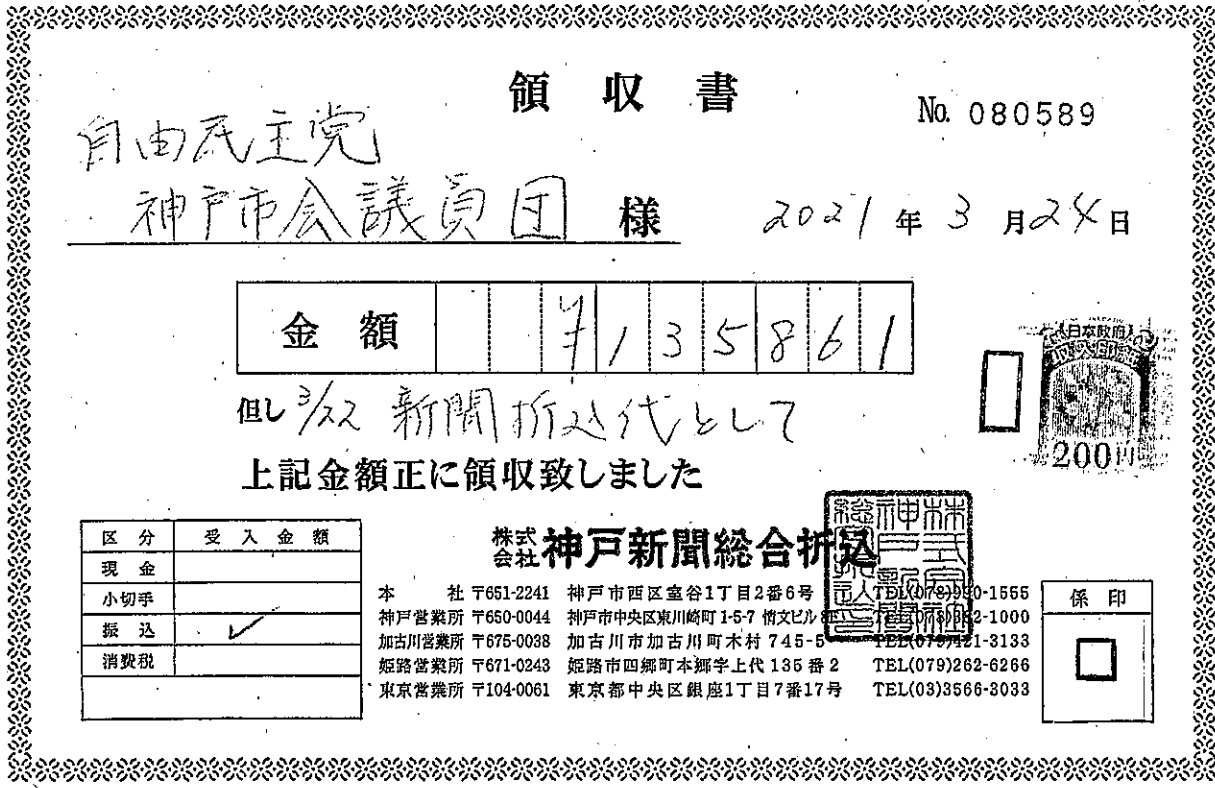 領収書
No. 080589
自由民主党
神戸市会議員団 様
2021年3月24日
金額 ¥135861
日本政府
200円
但し 3/22 新聞折込代として
上記金額正に領収致しました
区分 受入金額
現金
小切手
振込 ✓
消費税
株式会社 神戸新聞総合折込
本社 〒651-2241 神戸市西区室谷1丁目2番6号 TEL(078)990-1555
神戸営業所 〒650-0044 神戸市中央区東川崎町1-5-7 情文ビル TEL(078)362-1000
加古川営業所 〒675-0038 加古川市加古川町木村745-5 TEL(079)421-3133
姫路営業所 〒671-0243 姫路市四郷町本郷字上代135番2 TEL(079)262-6266
東京営業所 〒104-0061 東京都中央区銀座1丁目7番17号 TEL(03)3566-3033
係印